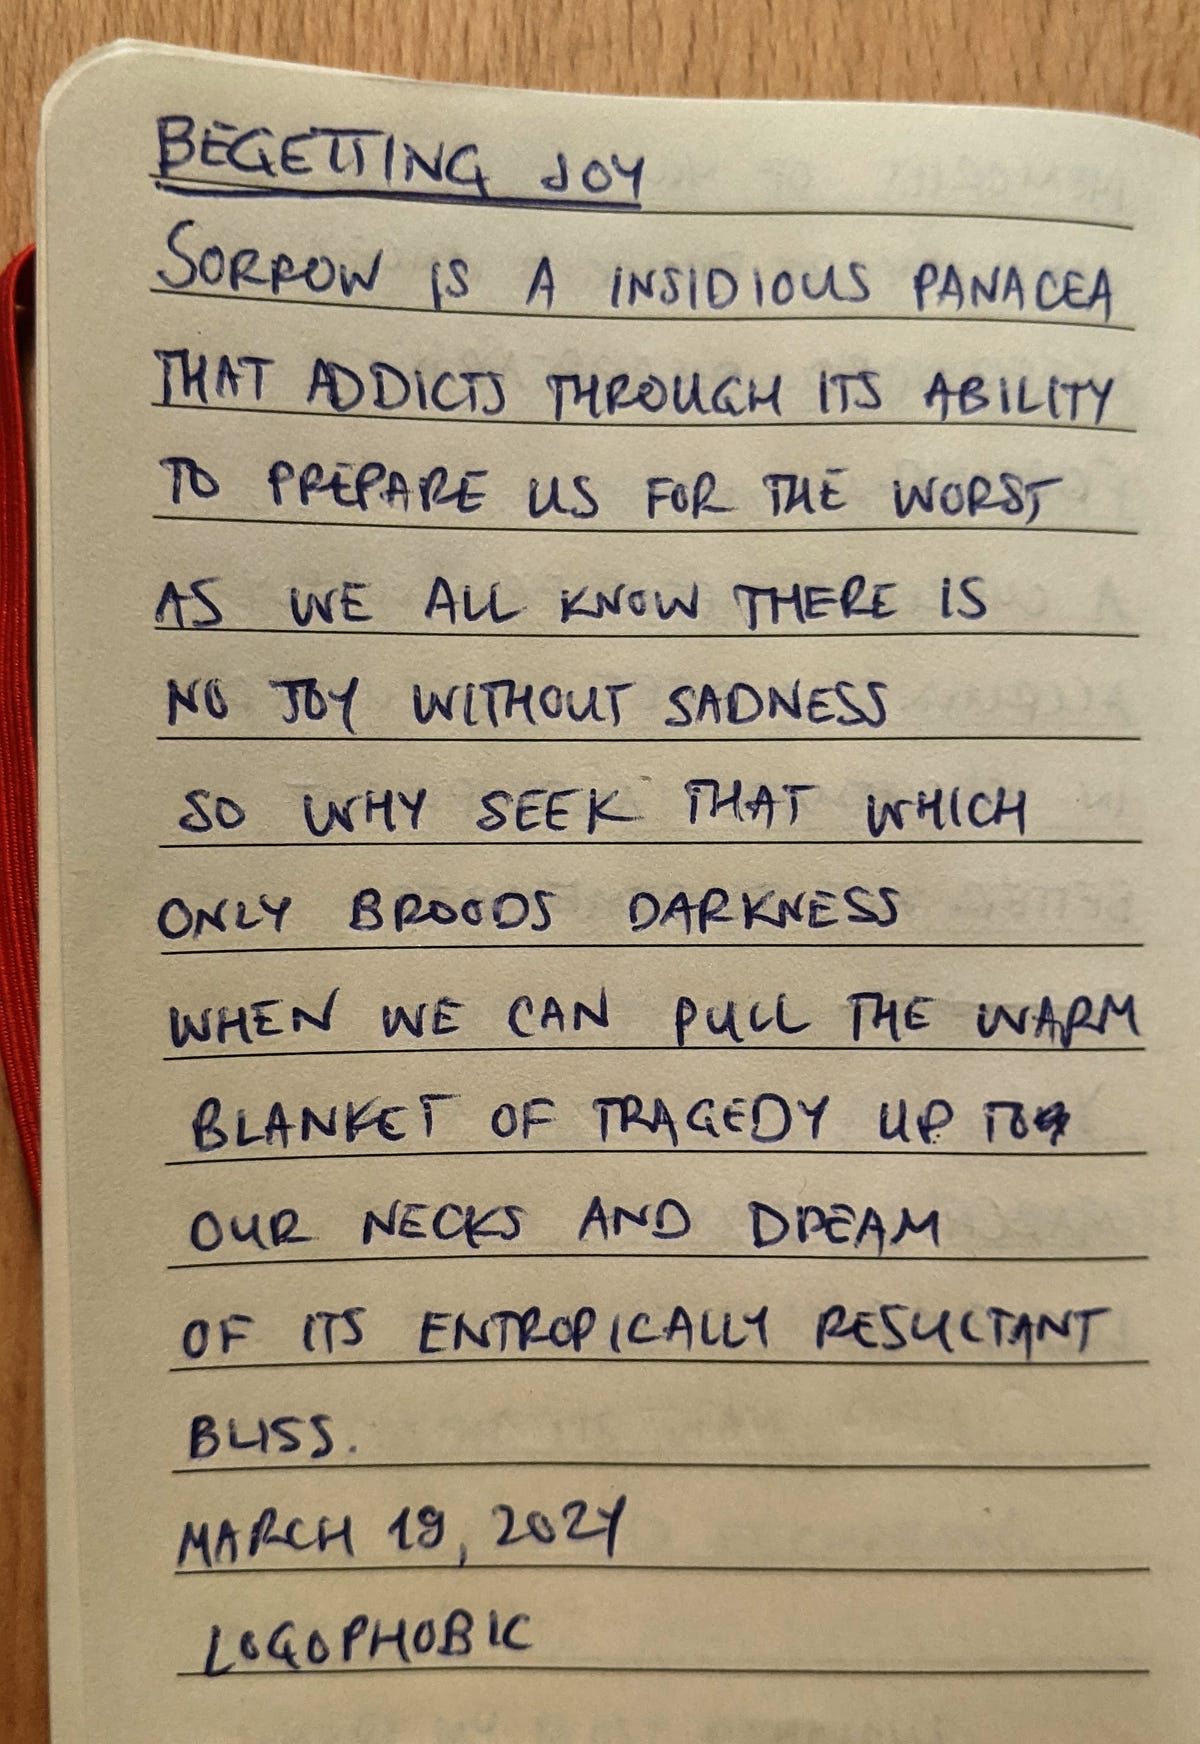 BEGETTING JOY
SORROW IS A INSIDIOUS PANACEA
THAT ADDICTS THROUGH ITS ABILITY
TO PREPARE US FOR THE WORST
AS WE ALL KNOW THERE IS
NO JOY WITHOUT SADNESS
SO WHY SEEK THAT WHICH
ONLY BROODS DARKNESS
WHEN WE CAN PULL THE WARM
BLANKET OF TRAGEDY UP TO
OUR NECKS AND DREAM
OF ITS ENTROPICALLY RESULTANT
BLISS.
MARCH 19, 2024
LOGOPHOBIC